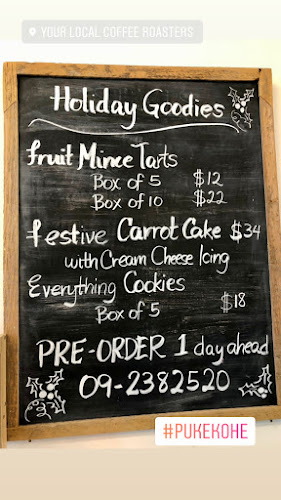 YOUR LOCAL COFFEE ROASTERS
Holiday Goodies
Fruit Mince Tarts
Box of 5 $12
Box of 10 $22
Festive Carrot Cake $34
with Cream Cheese Icing
Everything Cookies
Box of 5 $18
PRE-ORDER 1 day ahead
09-2382520
#PUKEKOHE